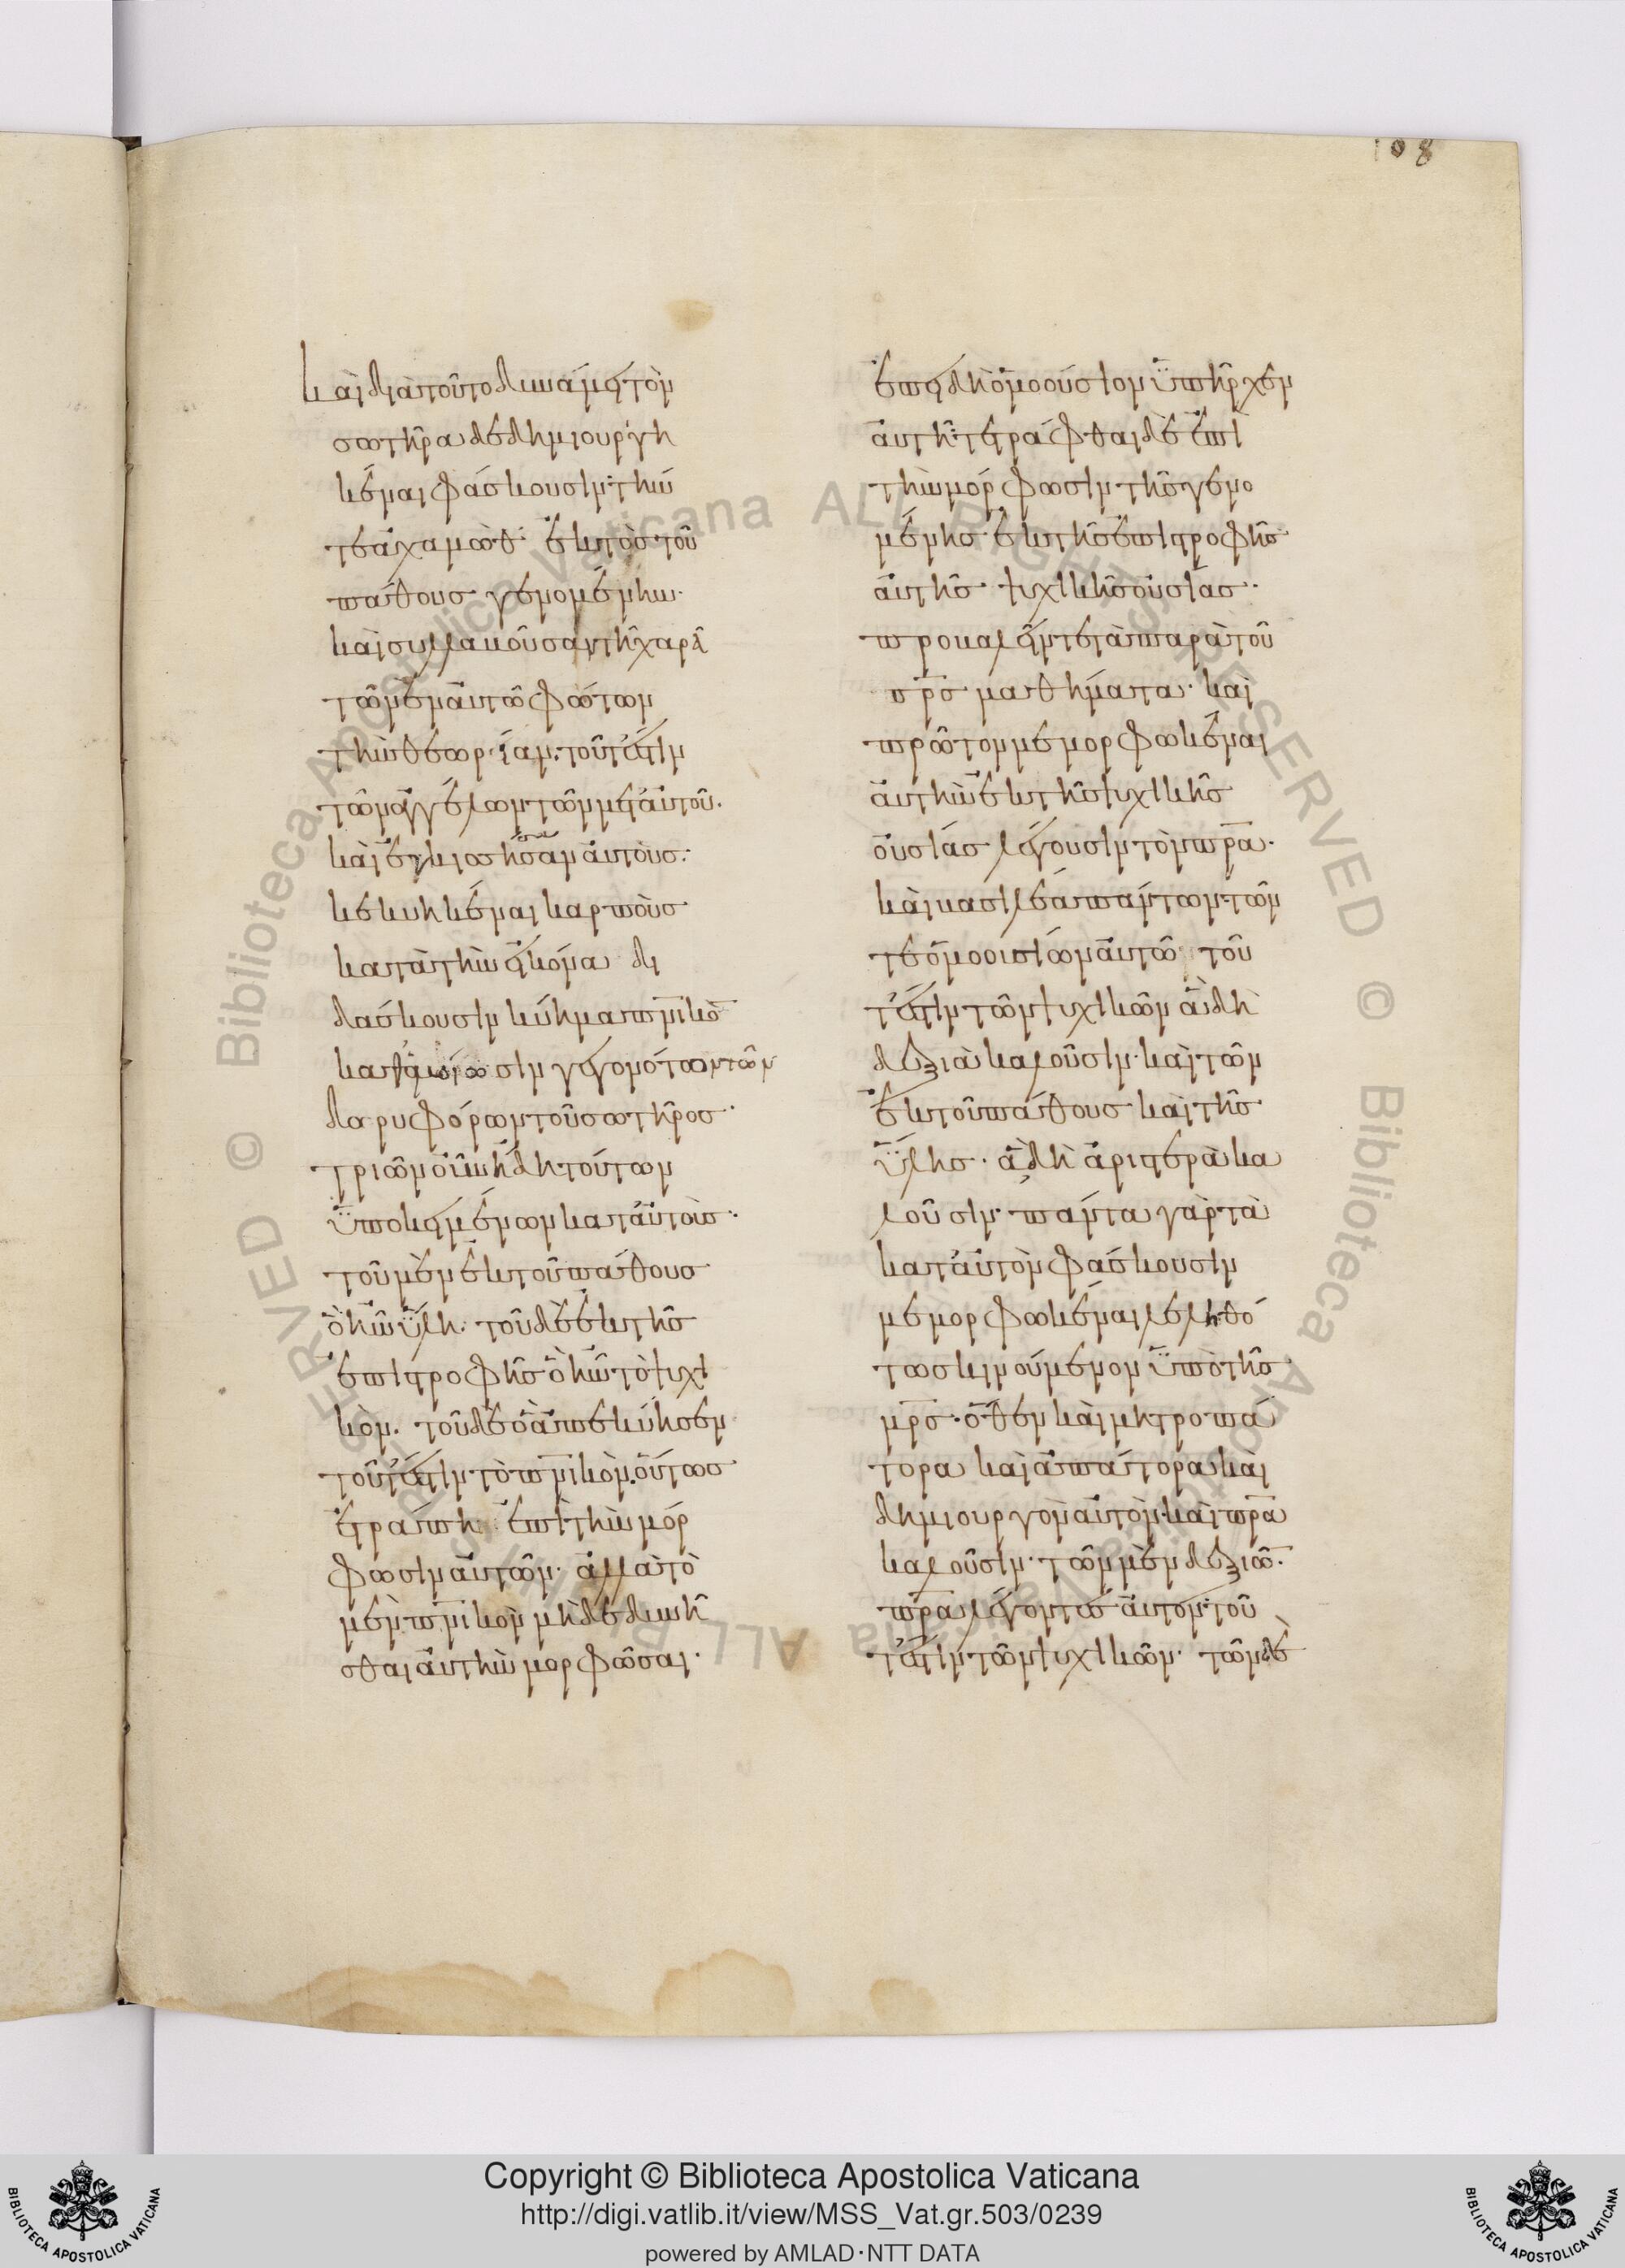 108
καὶ διὰ τοῦτο δυνάμει τὸν
σωτῆρα δεδημιουργη
κέναι φάσκουσιν· τήν
τε ἀχαμὼθ ἐκτὸς τοῦ
πάθους γενομένην·
καὶ συλλαβοῦσαν τῆ χαρᾶ
τῶν ἐν αὐτῶ φώτων
τὴν θεωρίαν· τουτέστιν
τῶν ἀγγέλων τῶν μετ αὐτοῦ·
καὶ ἐγκισσήσασαν αὐτοὺς·
κεκυηκέναι καρποὺς
κατὰ τὴν εἰκόνα δι
δάσκουσιν κύημα πνικὸ
καθ ὁμοίωσιν γεγονότων τῶν
δορυφόρων τοῦ σωτῆρος·
τριῶν οὖν ἤδη τούτων
ὑποκειμένων κατ αὐτοὺς·
τοῦ μὲν ἐκ τοῦ πάθους
ὃ ἦν ὕλη· τοῦ δὲ ἐκ τῆς
ἐπιστροφῆς ὃ ἦν τὸ ψυχι
κόν· τοῦ δὲ ὃ ἀπεκύησεν
τουτέστιν τὸ πνικόν· οὕτως
ἐτράπη ἐπὶ τὴν μόρ
φωσιν αὐτῶν· ἀλλὰ τὸ
μὲν πνικὸν μὴ δεδυνῆ
σθαι αὐτὴν μορφῶσαι·
ἐπειδὴ ὁμοούσιον ὑπῆρχεν
αὐτῆ· τετράφθαι δὲ ἐπὶ
τὴν μόρφωσιν τῆς γενο
μένης ἐκ τῆς ἐπιστροφῆς
αὐτῆς ψυχικῆς οὐσίας·
προβαλεῖν τε τὰ παρὰ τοῦ
σρς μαθήματα· καὶ
πρῶτον μεμορφωκέναι
αὐτὴν ἐκ τῆς ψυχικῆς
οὐσίας λέγουσιν τὸν πρα·
καὶ βασιλέα πάντων· τῶν
τε ὁμοουσίων αὐτῶ του
τέστιν τῶν ψυχικῶν ἃ δὴ
δεξιὰ καλοῦσιν· καὶ τῶν
ἐκ τοῦ πάθους καὶ τῆς
ὕλης· ἃ δὴ ἀριστερὰ κα
λοῦσιν· πάντα γὰρ τὰ
κατ αὐτὸν φάσκουσιν
μεμορφωκέναι λεληθό
τως κινούμενον ὑπὸ τῆς
μρς· ὅθεν καὶ μητροπά
τορα καὶ ἀπάτορα καὶ
δημιουργὸν αὐτὸν καὶ πρα
καλοῦσιν· τῶν μὲν δεξιῶ·
πρα λέγοντες αὐτον· του
τέστιν τῶν ψυχικῶν· τῶν δὲ
Copyright © Biblioteca Apostolica Vaticana
http://digi.vatlib.it/view/MSS_Vat.gr.503/0239
powered by AMLAD·NTT DATA